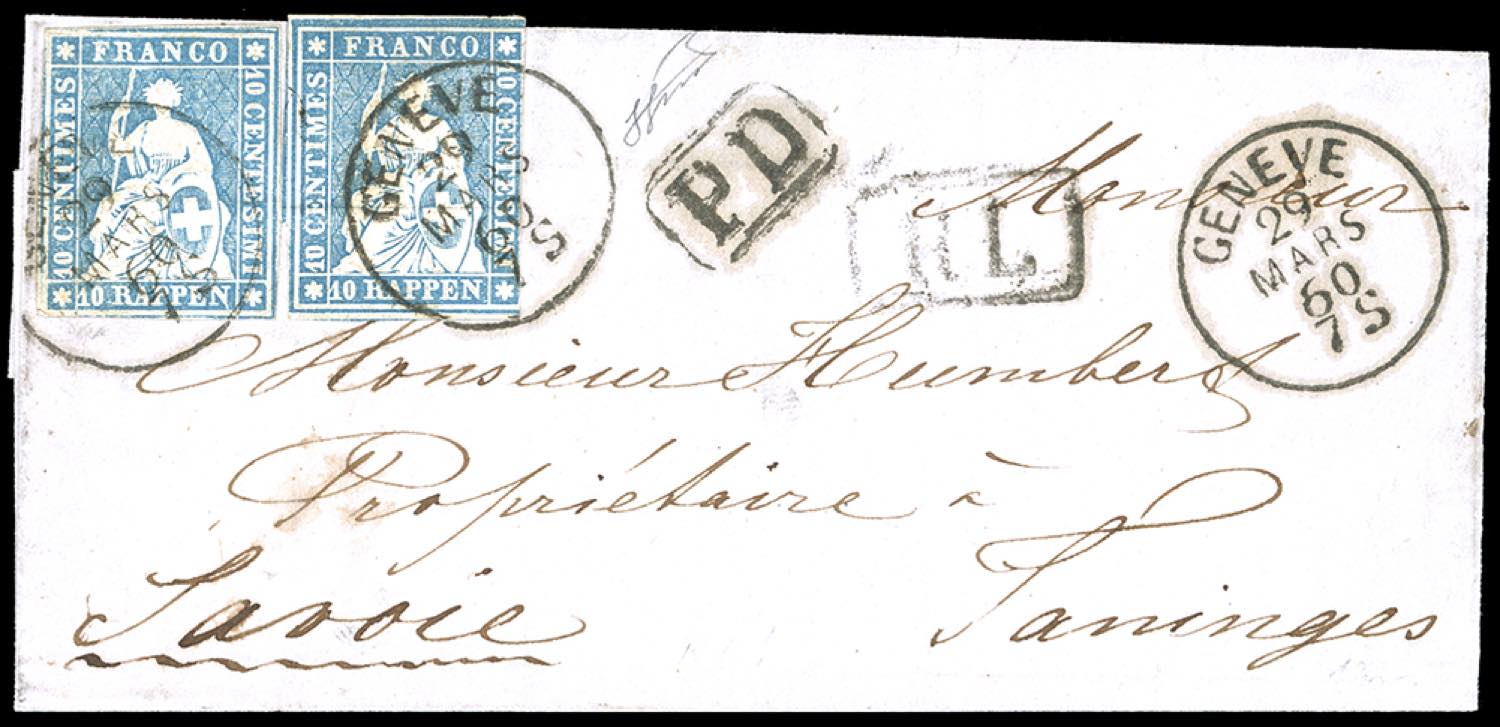 FRANCO
10 CENTIMES
10 CENTESIMI
10 RAPPEN
FRANCO
10 CENTIMES
10 CENTESIMI
10 RAPPEN
GENÈVE
29
MARS
60
7S
GENÈVE
29
MARS
60
7S
PD
GENÈVE
29
MARS
60
7S
Monsieur
Monsieur Humbert
Propriétaire à
Taninges
Savoie